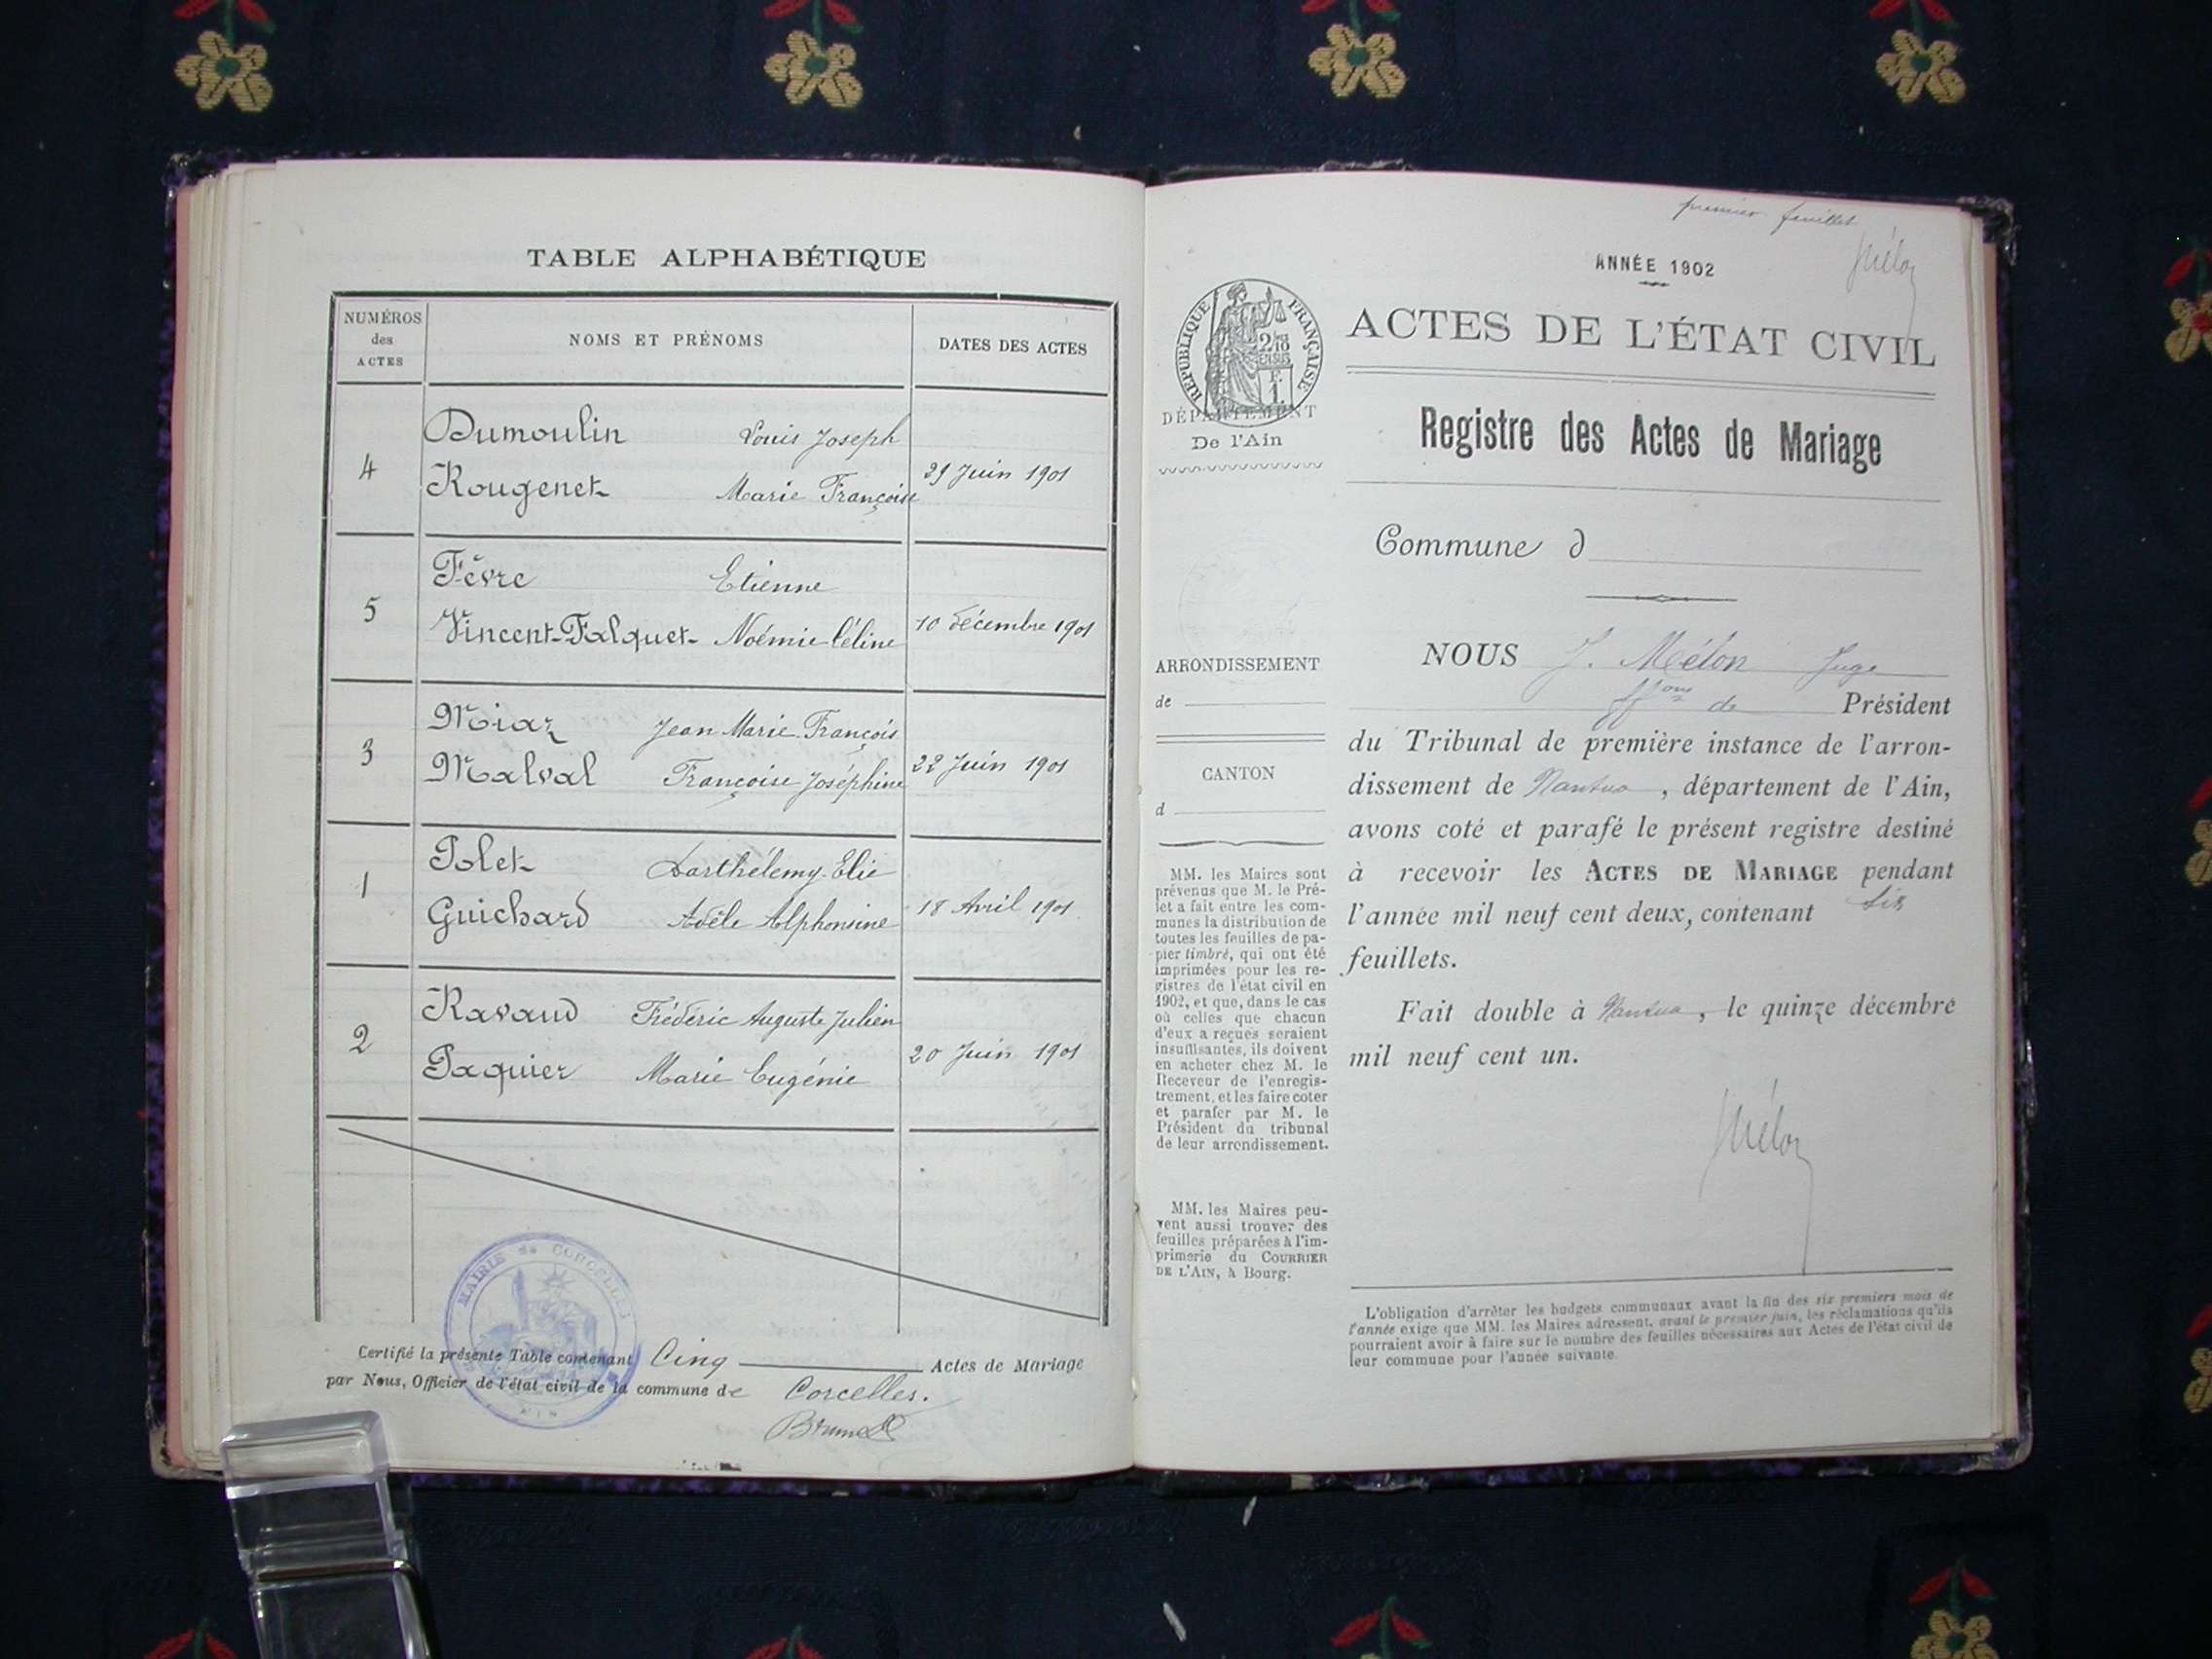 TABLE ALPHABÉTIQUE
NUMÉROS des ACTES
NOMS ET PRÉNOMS
DATES DES ACTES
Dumoulin Louis Joseph
4 29 Juin 1901
Rougenet Marie Françoise
Fèvre Etienne
5 10 décembre 1901
Vincent-Falquet Noémie Céline
Miaz Jean Marie François
3 22 Juin 1901
Malval Françoise Joséphine
Polet Barthélemy Elie
1 18 Avril 1901
Guichard Adèle Alphonsine
Ravaud Frédéric Auguste Julien
2 20 Juin 1901
Paquier Marie Eugénie
MAIRIE de CORCELLES
AIN
Certifié la présente Table contenant Cinq Actes de Mariage
par Nous, Officier de l'état civil de la commune de Corcelles.
premier feuillet
Mélon
ANNÉE 1902
ACTES DE L'ÉTAT CIVIL
RÉPUBLIQUE FRANÇAISE
2/10 EN SUS
F. 1.
DÉPARTEMENT
De l'Ain
Registre des Actes de Mariage
Commune d
ARRONDISSEMENT
de
CANTON
d
MM. les Maires sont
prévenus que M. le Pré-
fet a fait entre les com-
munes la distribution de
toutes les feuilles de pa-
pier timbré, qui ont été
imprimées pour les re-
gistres de l'état civil en
1902, et que, dans le cas
où celles que chacun
d'eux a reçues seraient
insuffisantes, ils doivent
en acheter chez M. le
Receveur de l'enregis-
trement, et les faire coter
et parafer par M. le
Président du tribunal
de leur arrondissement.
MM. les Maires peu-
vent aussi trouver des
feuilles préparées à l'im-
primerie du COURRIER
DE L'AIN, à Bourg.
NOUS J. Mélon Juge
ffons de Président
du Tribunal de première instance de l'arron-
dissement de Nantua, département de l'Ain,
avons coté et parafé le présent registre destiné
à recevoir les ACTES DE MARIAGE pendant
l'année mil neuf cent deux, contenant Six
feuillets.
Fait double à Nantua, le quinze décembre
mil neuf cent un.
Mélon
L'obligation d'arrêter les budgets communaux avant la fin des six premiers mois de
l'année exige que MM. les Maires adressent, avant le premier juin, les réclamations qu'ils
pourraient avoir à faire sur le nombre des feuilles nécessaires aux Actes de l'état civil de
leur commune pour l'année suivante.